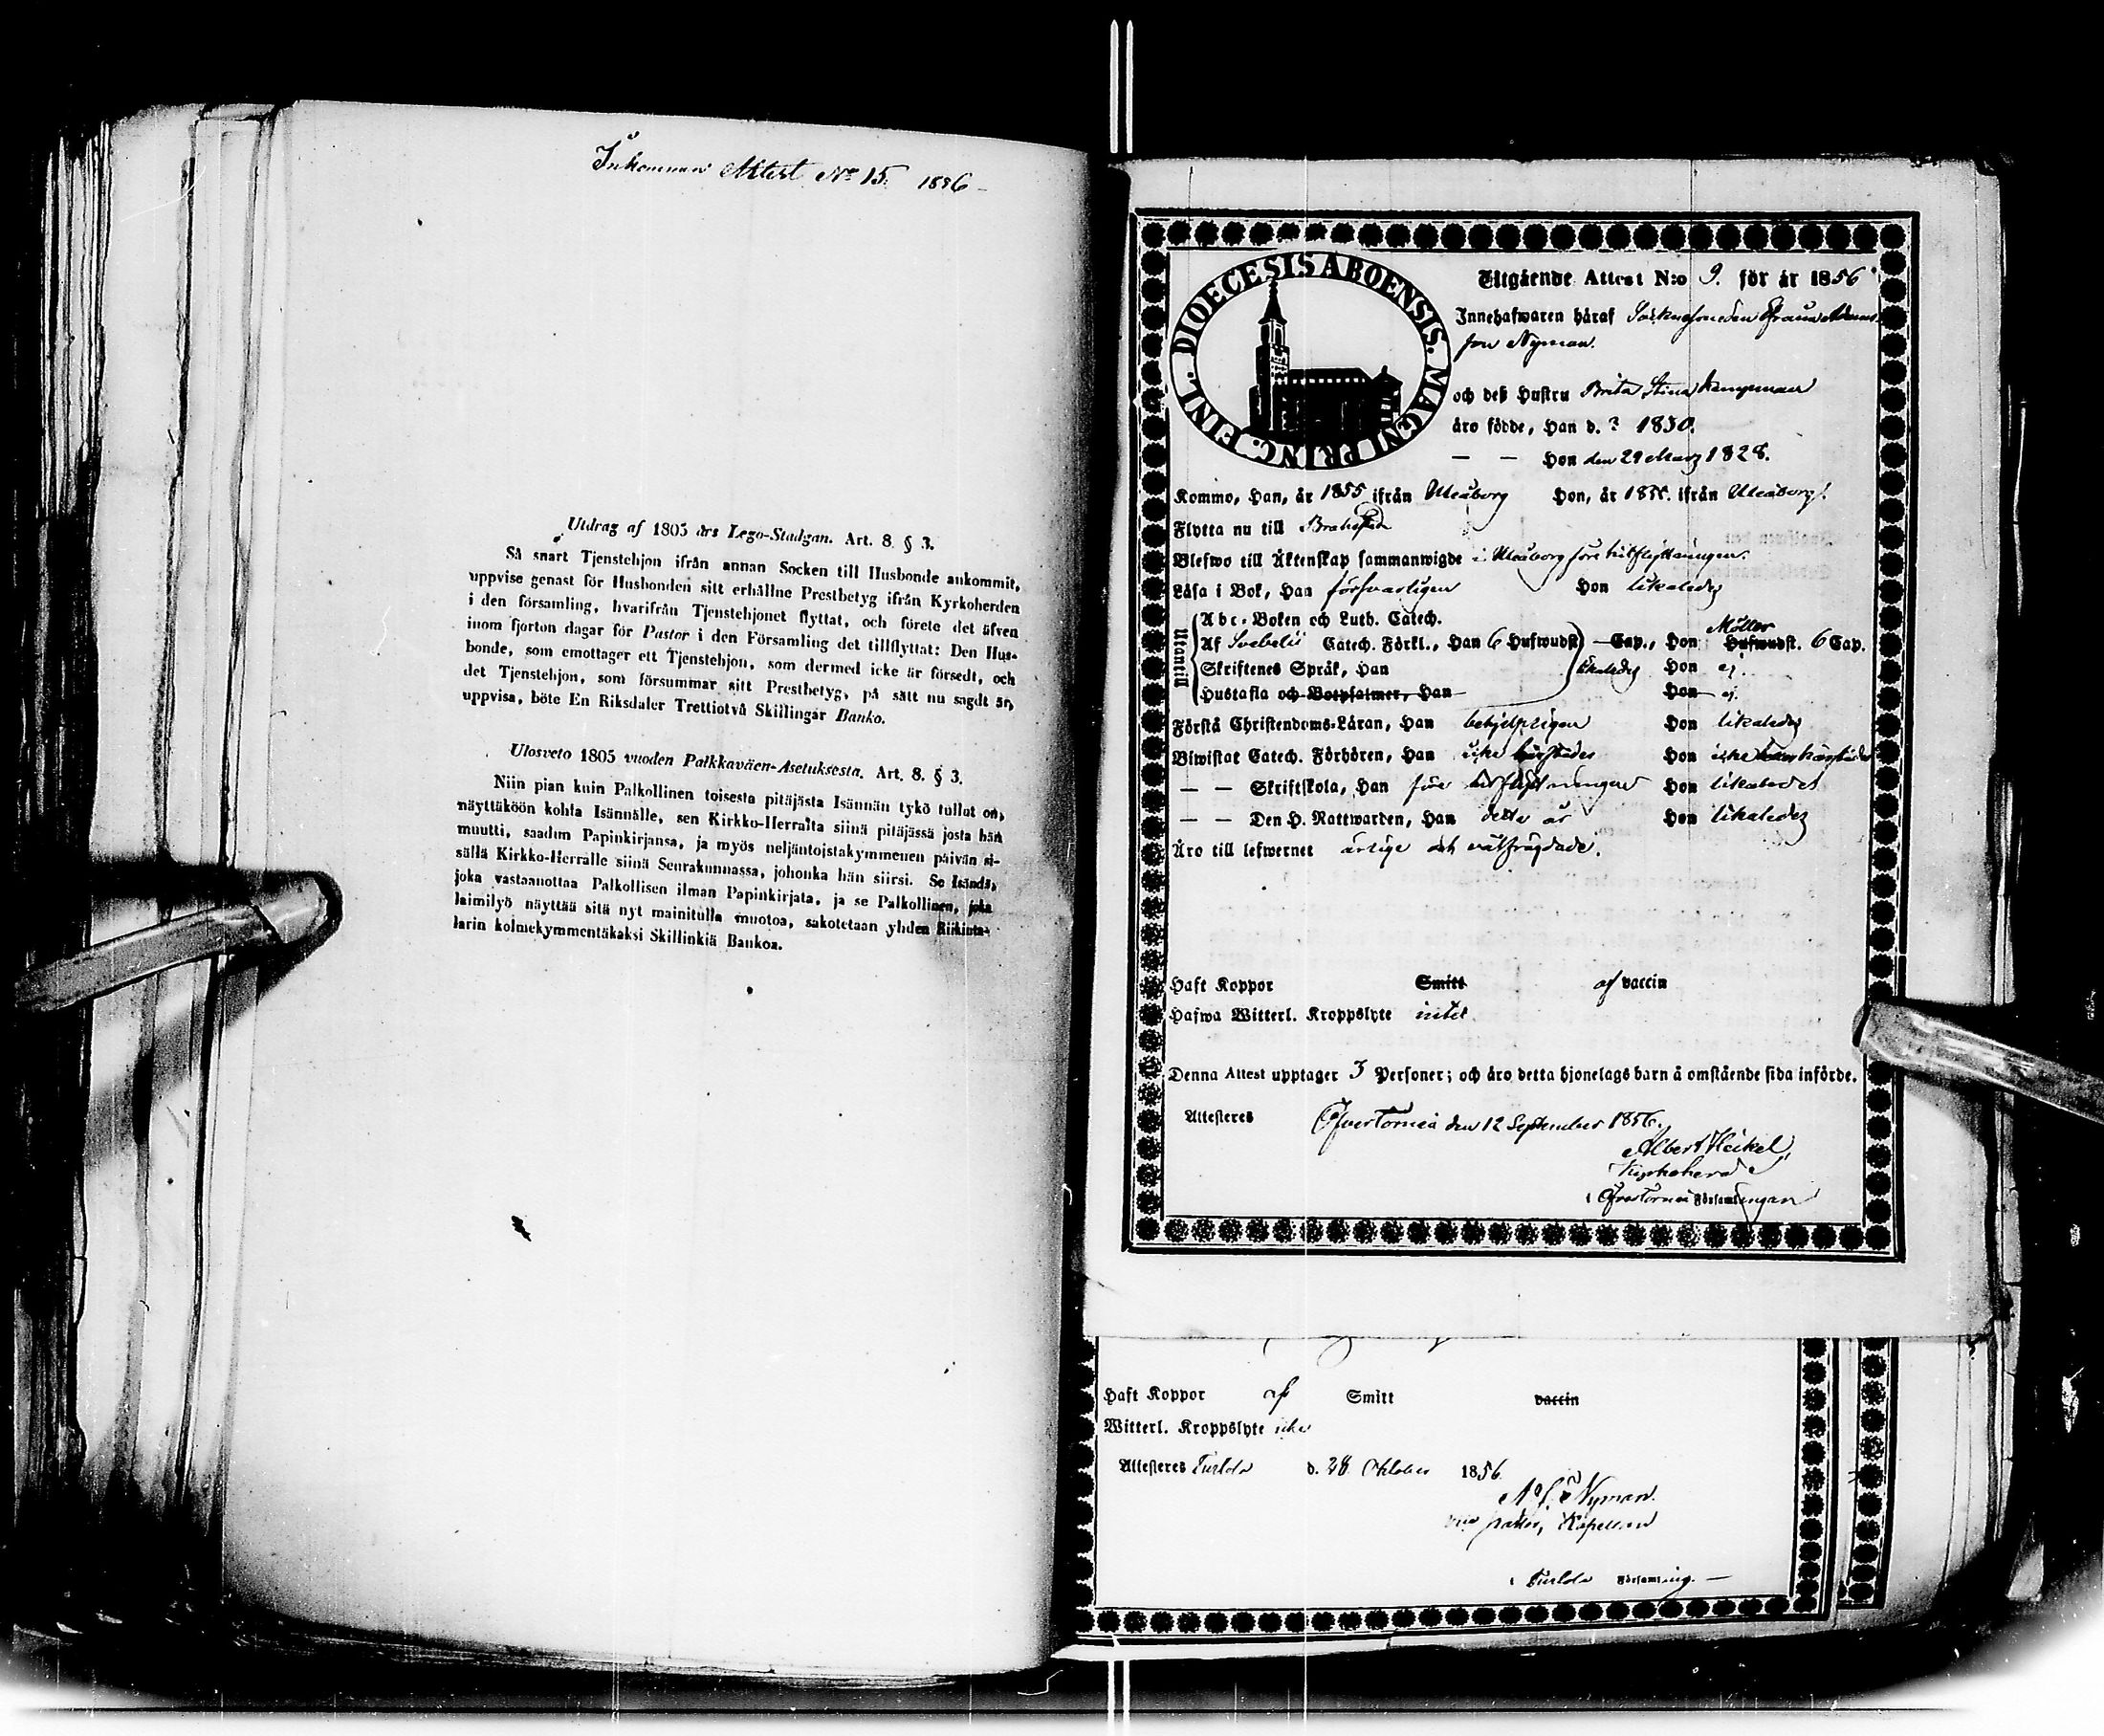 Inkommen Attest No 15. 1856
Utdrag af 1805 års Lego-Stadgan. Art. 8. § 3.
Så snart Tjenstehjon ifrån annan Socken till Husbonde ankommit,
uppvise genast för Husbonden sitt erhållne Prestbetyg ifrån Kyrkoherden
i den församling, hvarifrån Tjenstehjonet flyttat, och förete det äfven
inom fjorton dagar för Pastor i den Församling det tillflyttat: Den Hus-
bonde, som emottager ett Tjenstehjon, som dermed icke är försedt, och
det Tjenstehjon, som försummar sitt Prestbetyg, på sätt nu sagdt är,
uppvisa, böte En Riksdaler Trettiotvå Skillingar Banko.
Ulosveto 1805 vuoden Palkkaväen-Asetuksesta. Art. 8. § 3.
Niin pian kuin Palkollinen toisesta pitäjästä Isännän tykö tullut on,
näyttäköön kohta Isännälle, sen Kirkko-Herralta siinä pitäjässä josta hän
muutti, saadun Papinkirjansa, ja myös neljäntoistakymmenen päivän si-
sällä Kirkko-Herralle siinä Seurakunnassa, johonka hän siirsi. Se Isändä,
joka vastaanottaa Palkollisen ilman Papinkirjata, ja se Palkollinen, joka
laimilyö näyttää sitä nyt mainitulla muotoa, sakotetaan yhden Riikinta-
larin kolmekymmentäkaksi Skillinkiä Bankoa.
DIOECESIS ABOENSIS. MAGNI PRINC. FINL.
Utgående Attest N:o 9. för år 1856
Innehafwaren häraf Sockensmeden
son Nyman.
och deß Hustru Brita Stina
äro födde, Han d. ? 1830.
— — Hon den 29 Marz 1828.
Kommo, Han, år 1855 ifrån Uleåborg Hon, år 1855. ifrån Uleåborg.
Flytta nu till Brahestad
Blefwo till Äktenskap sammanwigde i Uleåborg före hitflyttningen.
Läsa i Bok, Han försvarligen Hon likaledes
Utantill
Abc-Boken och Luth. Catech.
Af Svebelii Catech. Förkl., Han 6 Hufwudst. Cap., Hon Möller Hufwudst. 6 Cap.
Skriftenes Språk, Han likaledes Hon ej
Hustafla och Botpsalmer, Han Hon ej
Förstå Christendoms-Läran, Han behjelpligen Hon likaledes
Biwistat Catech. Förhören, Han icke härstädes Hon icke härstädes
— — Skriftskola, Han före hitflyttningen Hon likaledes
— — Den H. Nattwarden, Han detta år Hon likaledes
Äro till lefwernet ärlige och välfrägdade.
Haft Koppor Smitt af vaccin
Hafwa Witterl. Kroppslyte intet
Denna Attest upptager 3 Personer; och äro detta hjonelags barn å omstående sida införde.
Attesteras Öfvertorneå den 12 September 1856.
Albert Heikel,
Kyrkoherde
i Öfvertorneå Församlingar
Haft Koppor af Smitt vaccin
Witterl. Kroppslyte icke
Attesteras Turtola d. 28 Oktober 1856
Nyman.
vice pastor, Kapellan
i Turtola Församling.